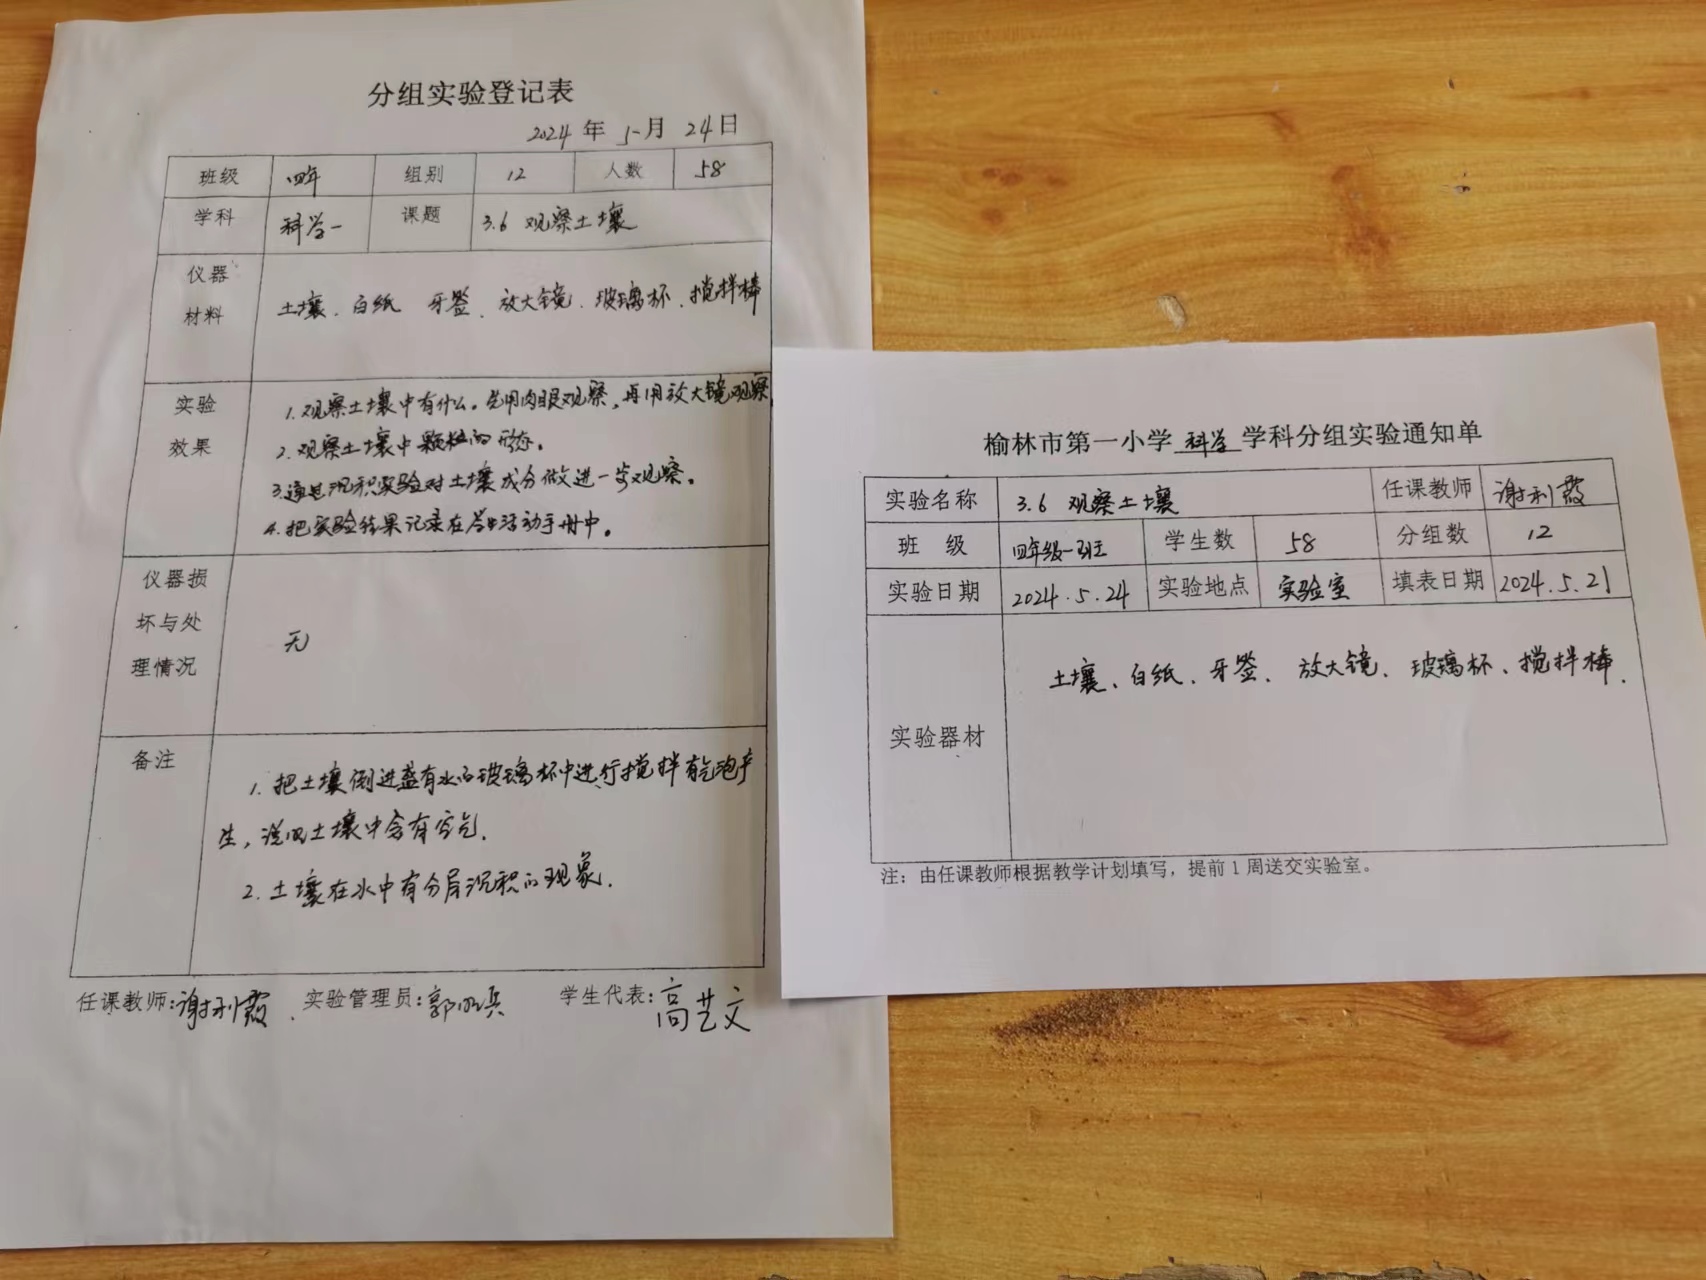 分组实验登记表
2024年 5月 24日
班级 四年 组别 12 人数 58
学科 科学一 课题 3.6 观察土壤
仪器材料 土壤、白纸 牙签、放大镜、玻璃杯、搅拌棒
实验效果 1.观察土壤中有什么。先用肉眼观察,再用放大镜观察
2.观察土壤中颗粒的形态。
3.通过沉积实验对土壤成分做进一步观察。
4.把实验结果记录在学生活动手册中。
仪器损坏与处理情况 无
备注 1.把土壤倒进盛有水的玻璃杯中进行搅拌有气泡产
生,说明土壤中含有空气.
2.土壤在水中有分层沉积的现象.
任课教师:谢利霞. 实验管理员:郭 学生代表:高艺文
榆林市第一小学 科学 学科分组实验通知单
实验名称 3.6 观察土壤 任课教师 谢利霞
班 级 四年级一班 学生数 58 分组数 12
实验日期 2024.5.24 实验地点 实验室 填表日期 2024.5.21
实验器材 土壤、白纸、牙签、放大镜、玻璃杯、搅拌棒.
注:由任课教师根据教学计划填写,提前1周送交实验室。